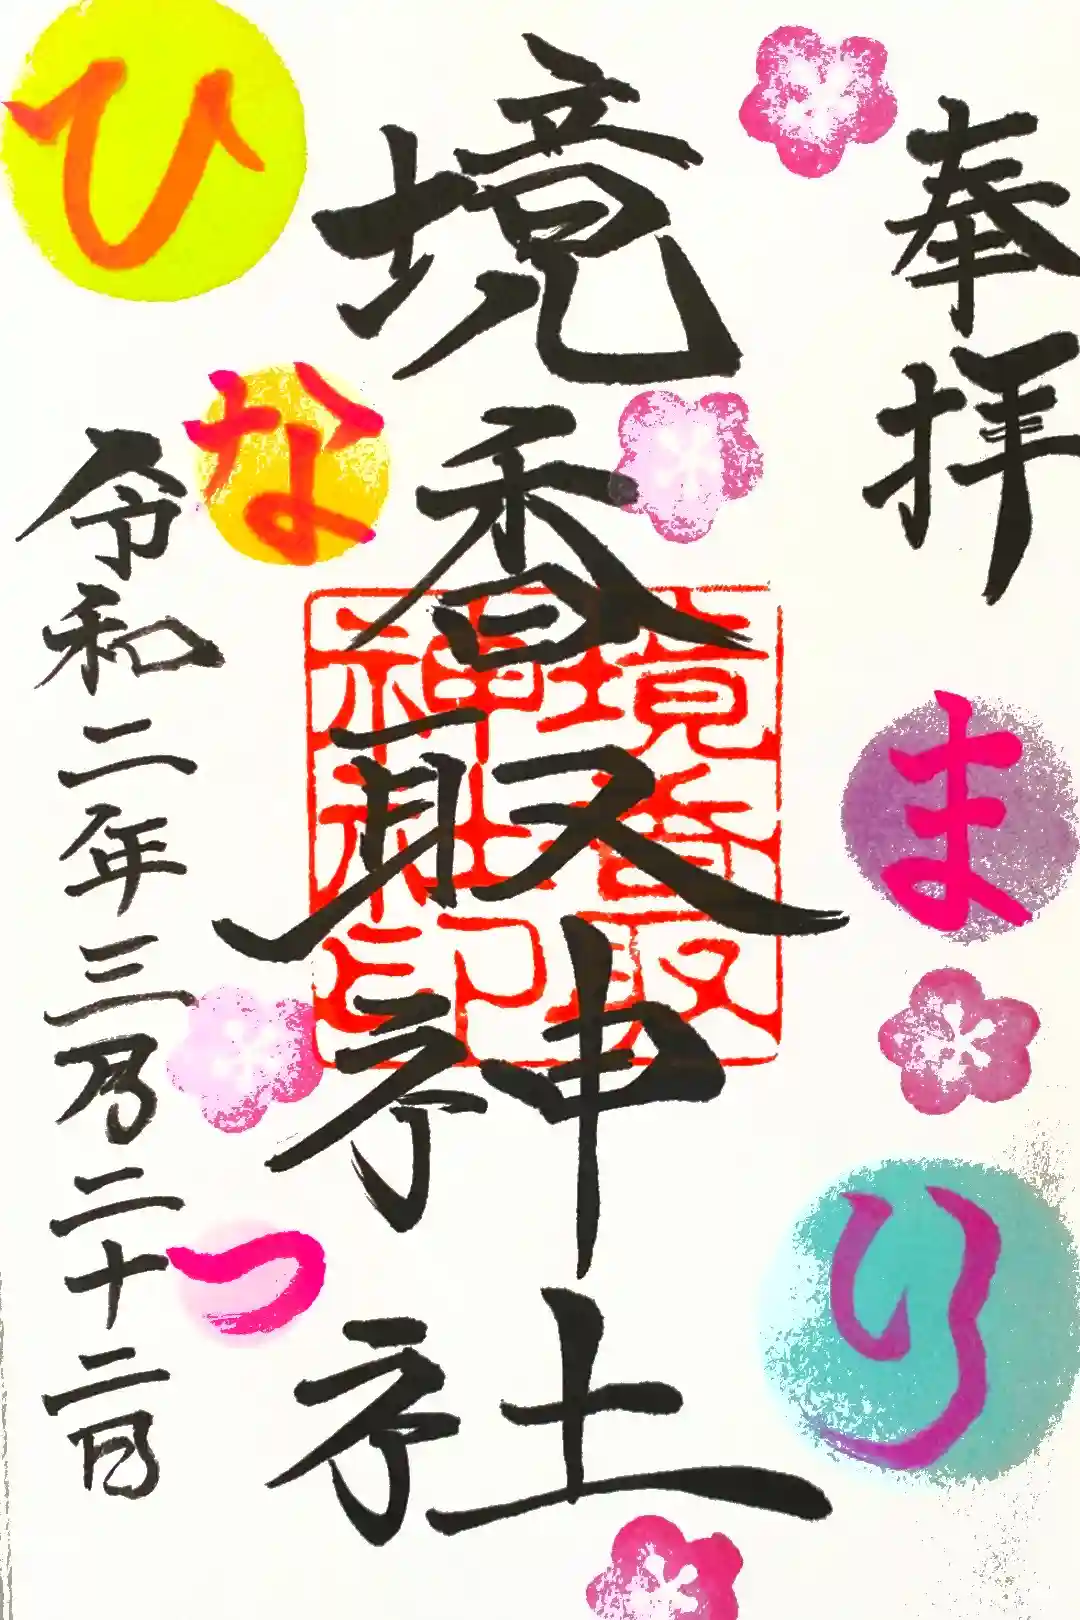 奉拝
境香取神社
境香取
神社印
令和二年三月二十二日
ひなまつり